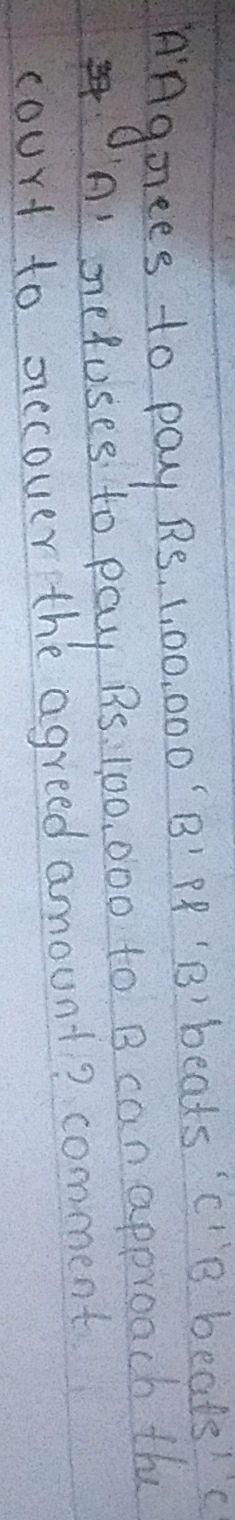 'A' Agrees to pay Rs. 1,00,000 'B' if 'B' beats 'C' 'B beats' 'C'
'A' refuses to pay Rs. 1,00,000 to B can approach the
court to recover the agreed amount? comment.